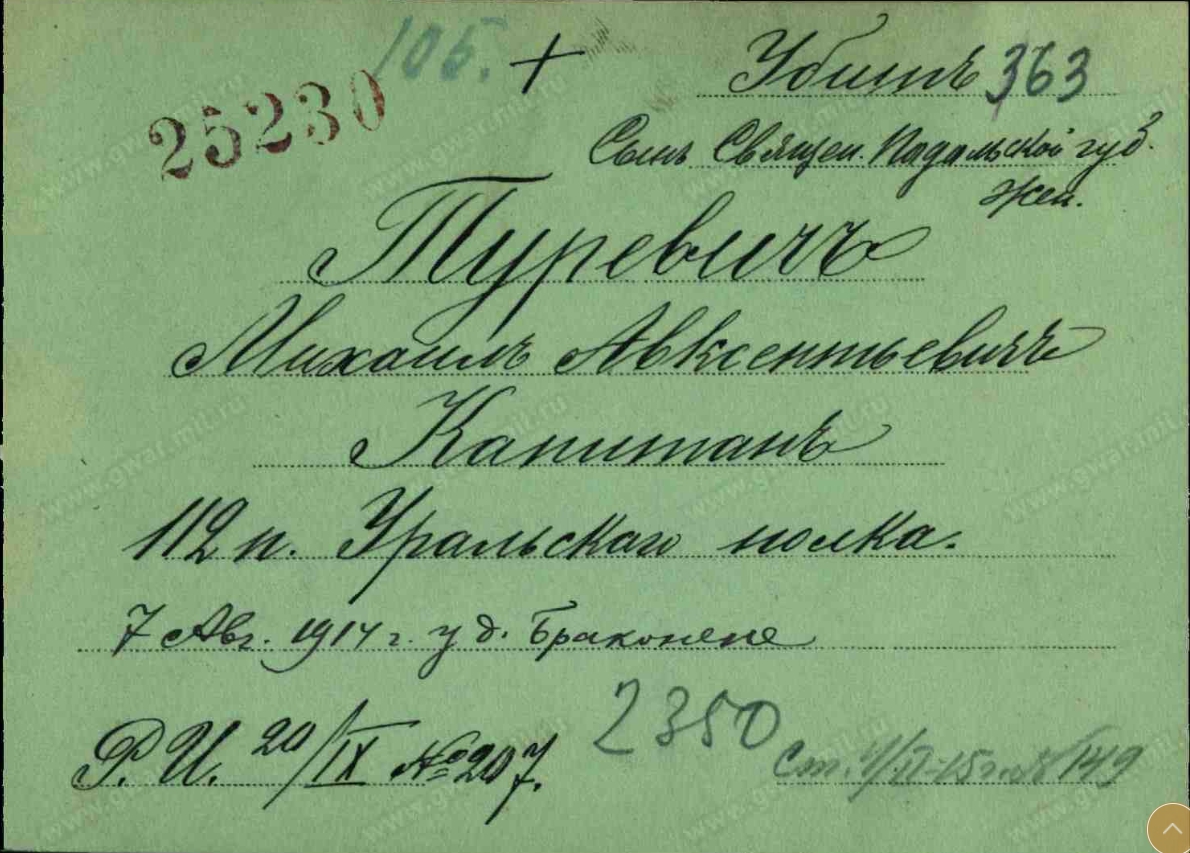 105. + Убитъ 363
25230
Сынъ Священ. Подольской губ.
жен.
Туревичъ
Михаилъ Авксентьевичъ
Капитанъ
112 п. Уральскаго полка.
7 Авг. 1914 г. у д. Браконене
Р. И. 20/IX № 207.
2350
Ст. 149
www.gwar.mil.ru